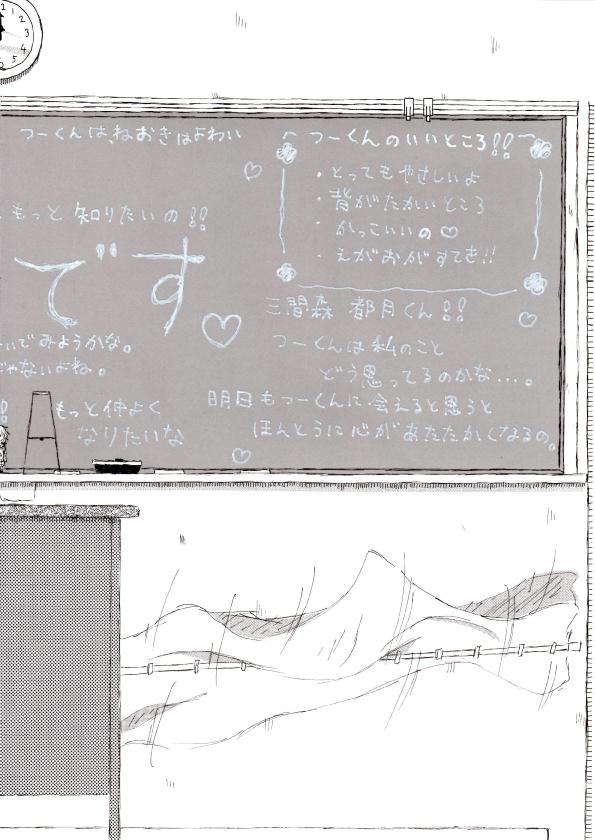 12
1
2
3
4
5
つーくんは、ねおきはよわい
もっと知りたいの!!
です
いでみようかな。
じゃないよね。
もっと仲よく
なりたいな
つーくんのいいところ!!
・とってもやさしいよ
・背がたかいところ
・かっこいいの♡
・えがおがすてき!!
三間森 都月くん!!
つーくんは私のこと
どう思ってるのかな...。
明日もつーくんに会えると思うと
ほんとうに心があたたかくなるの。